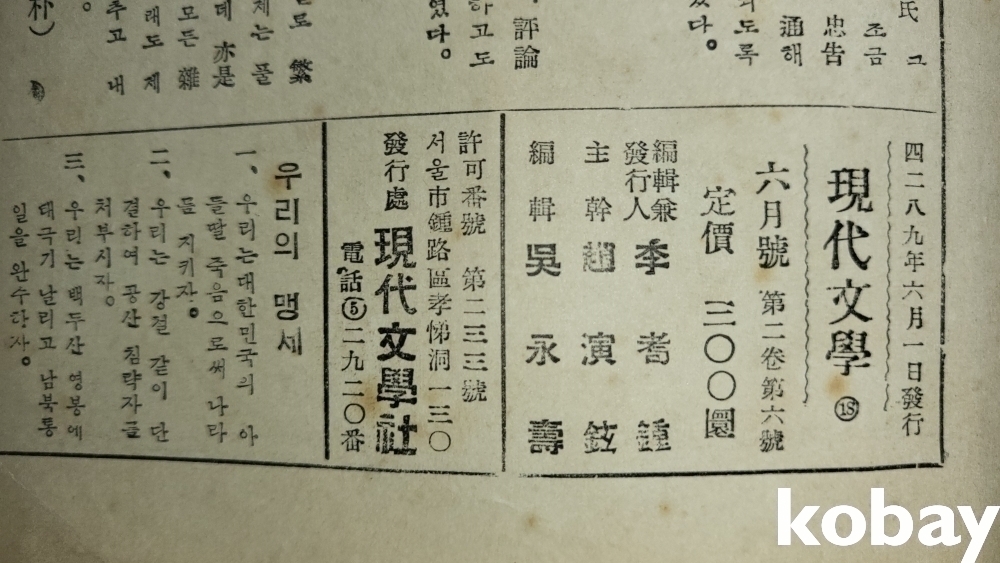 氏 그
조금
忠告
通해
되도록
다。
評論
하고도
였다。
로 繁
제는 풀
데 亦是
모든 雜
래도 제
추고 내
朴)
四二八九年六月一日發行
現代文學 ⑱
六月號 第二卷第六號
定價 三〇〇圜
編輯兼
發行人 李耉鍾
主幹 趙演鉉
編輯 吳永壽
許可番號 第二三三號
서울市鍾路區孝悌洞一三〇
發行處 現代文學社
電話⑤二九二〇番
우리의 맹세
一、우리는대한민국의 아
들딸 죽음으로써 나라
를 지키자。
二、우리는 강철 같이 단
결하여 공산 침략자를
처부시자。
三、우리는 백두산 영봉에
태극기 날리고 남북통
일을 완수하자。
kobay